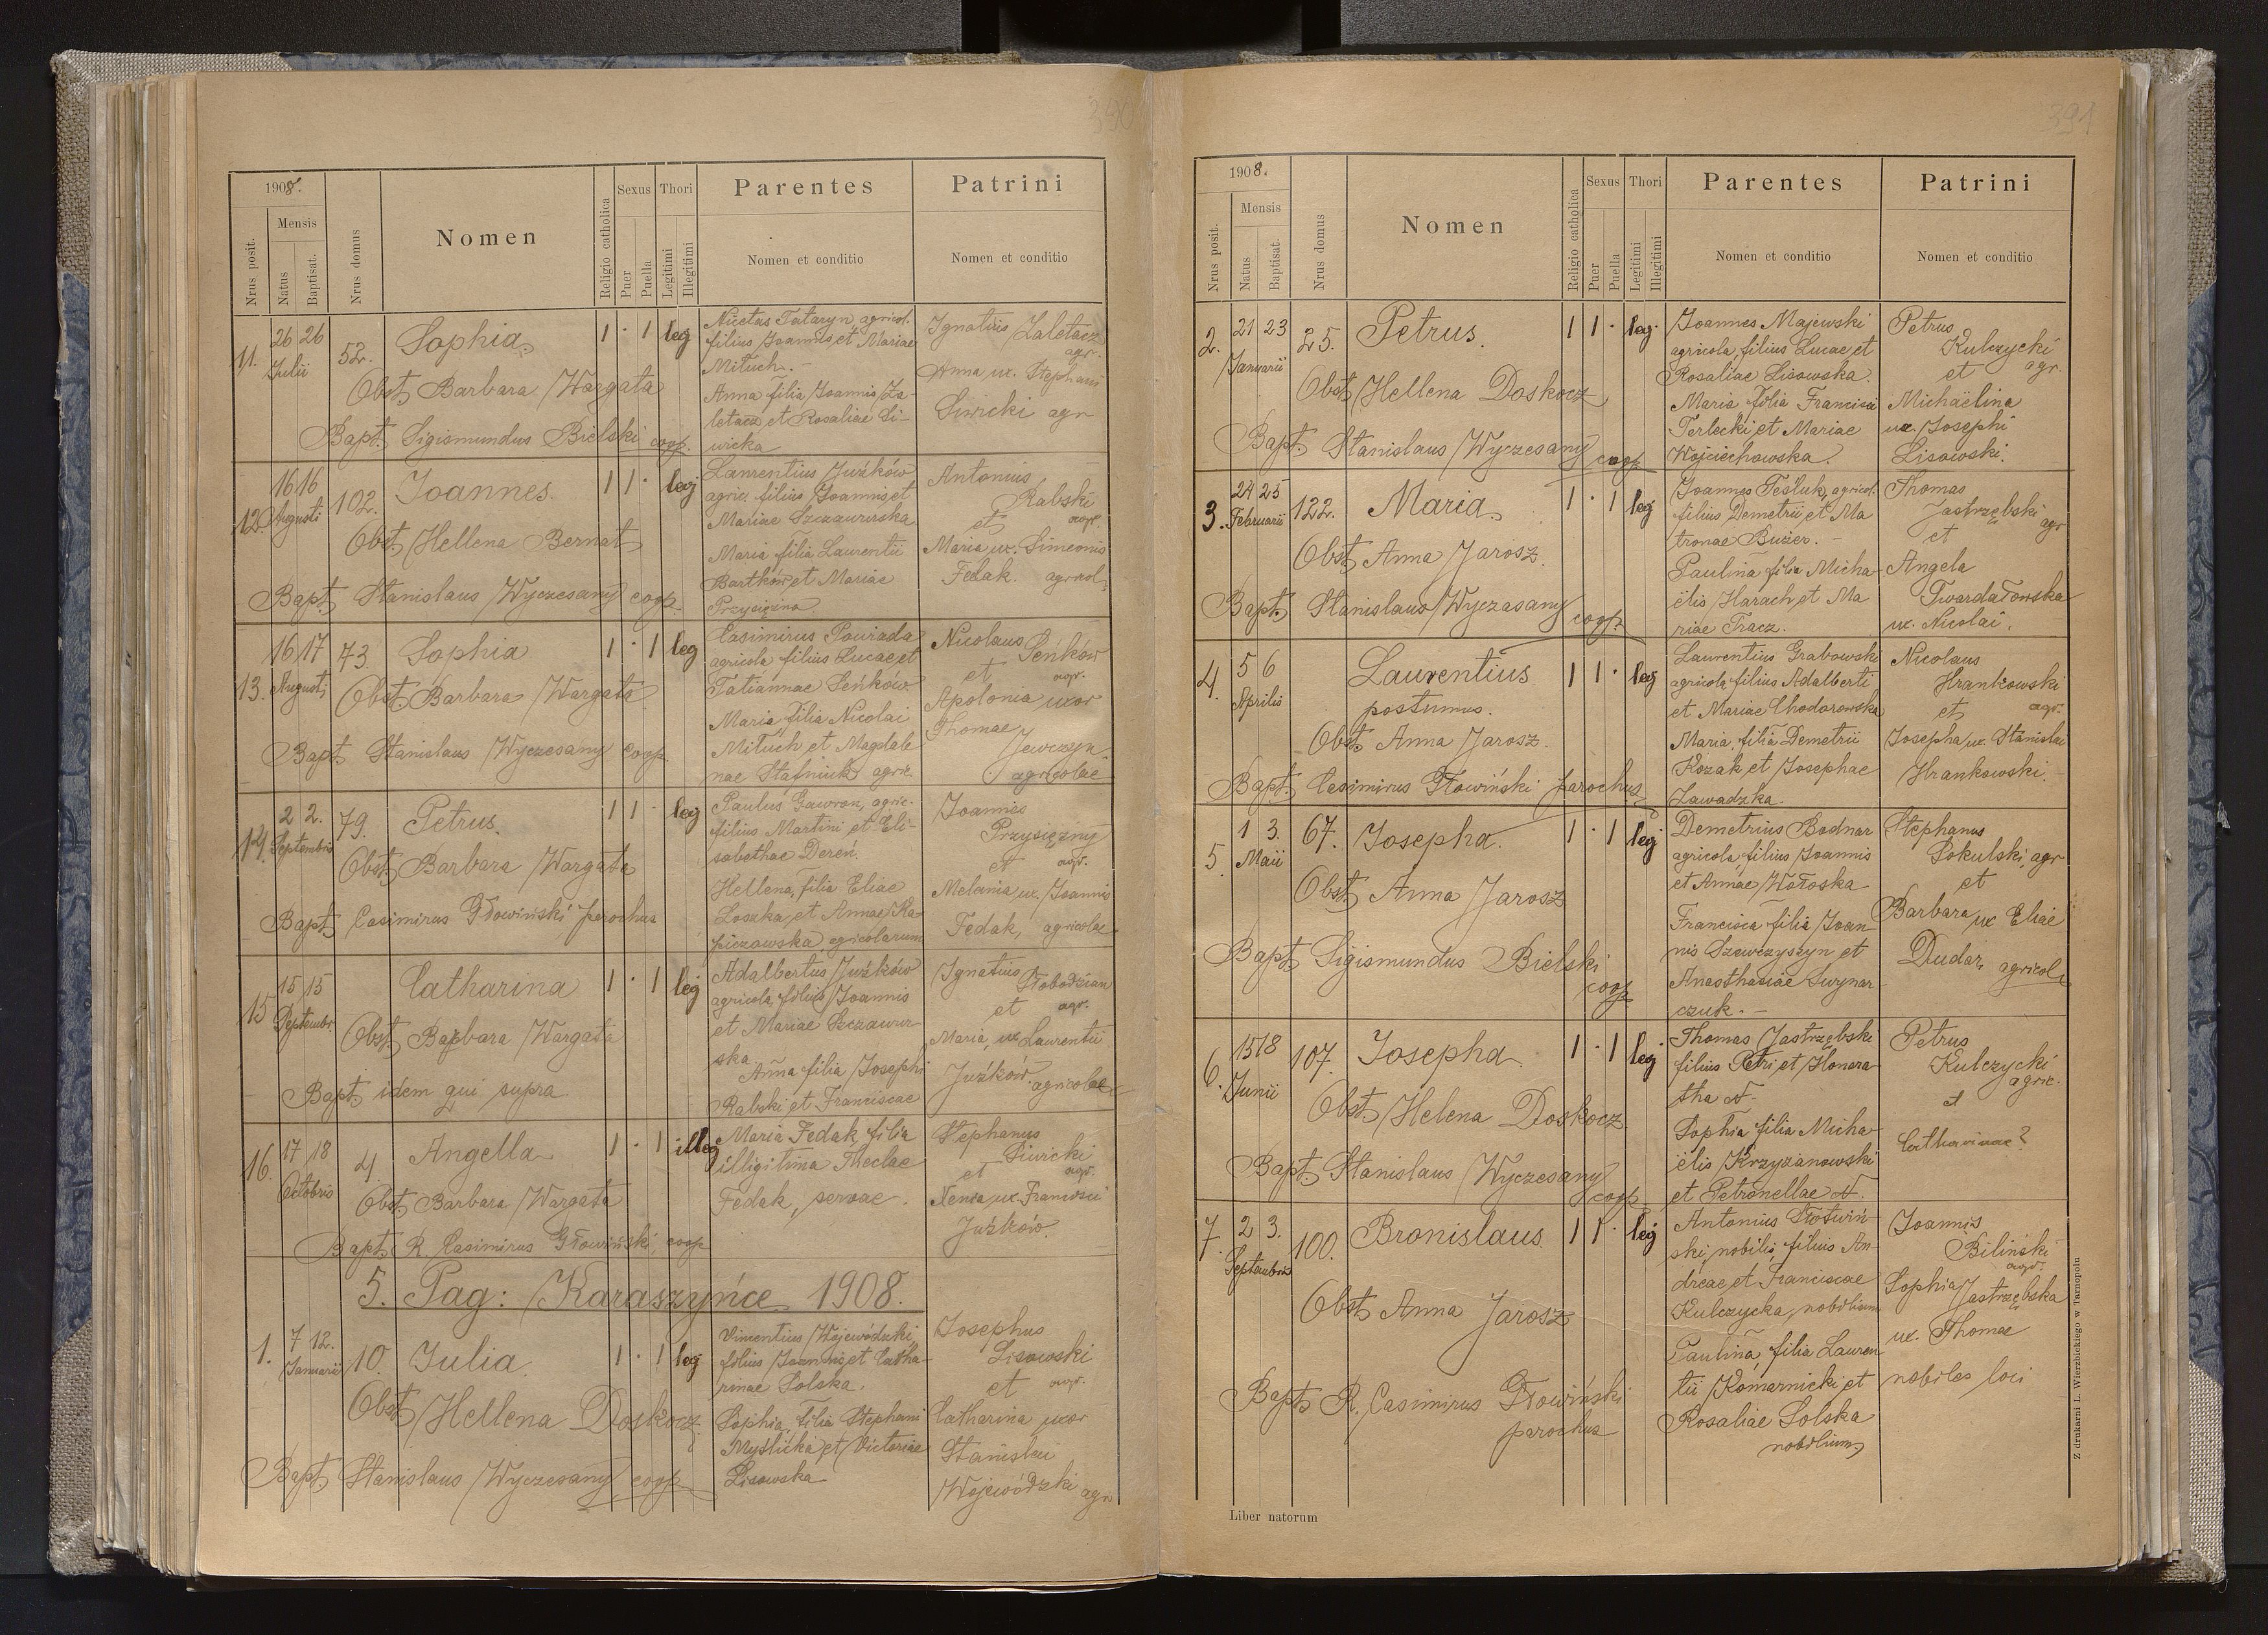 390
1908.
Nrus posit.
Mensis
Natus
Baptisat.
Nrus domus
Nomen
Religio catholica
Sexus
Puer
Puella
Thori
Legitimi
Illegitimi
Parentes
Nomen et conditio
Patrini
Nomen et conditio
11.
26 26
Julii
52.
Sophia
1 · 1 leg
Obst. Barbara Wargata
Bapt. Sigismundus Bielski coop.
Nicetas Tataryn, agricol.
filius Joannis et Mariae
Mituch. -
Anna filia Joannis Za-
letacz et Rosaliae Si-
wicka
Ignatius Zaletacz
agr.
Anna ux. Stephani
Siwicki agr
12.
16 16
Augusti
102.
Joannes.
1 1 · leg
Obst. Hellena Bernat
Bapt. Stanislaus Wyczesany coop.
Laurentius Juźków
agric. filius Joannis et
Mariae Szczawurska
Maria filia Laurentii
Bartków et Mariae
Przysiężna
Antonius
Rabski
et agr.
Maria ux. Simeonis
Fedak. agricol.
13.
16 17
Augusti
73.
Sophia
1 · 1 leg
Obst. Barbara Wargata
Bapt. Stanislaus Wyczesany coop.
Casimirus
agricola filius Lucae et
Tatiannae Seńków
Maria filia Nicolai
Mituch et Magdale
nae Stafniuk agric.
Nicolaus Seńków
et agr.
Apolonia uxor
Thomae
Jewczyn
agricolae
14.
2 2.
Septembris
79.
Petrus.
1 1 · leg
Obst. Barbara Wargata
Bapt. Casimirus Głowiński parochus
Paulus Gawron, agric.
filius Martini et Eli-
sabethae Dereń.
Hellena, filia Eliae
Loszka et Annae Ka-
piczowska agricolarum
Joannes
Przysiężny
et agr.
Melania ux. Joannis
Fedak, agricolae
15
15 15
Septembr.
Catharina
1 · 1 leg
Obst. Barbara Wargata
Bapt. idem qui supra
Adalbertus Juźków
agricola, filius Joannis
et Mariae Szczawur
ska
Anna filia Josephi
Rabski et Franciscae
Ignatius Słobodzian
et agr.
Maria, ux. Laurentii
Juźków. agricolae
16
17 18
Octobris
4
Angella
1 · 1 illeg
Obst. Barbara Wargata
Bapt. R. Casimirus Głowiński, coop
Maria Fedak filia
illigitima Theclae
Fedak, servae.
Stephanus
Siwicki
et agr.
Nenia ux. Francisci
Juźków.
5. Pag: Karaszyńce 1908.
1.
7 12.
Januarii
10.
Julia
1 · 1 leg
Obst. Hellena Doskocz.
Bapt. Stanislaus Wyczesany coop
Vincentius Wojewódzki,
filius Joannis et Catha-
rinae Solska.
Sophia, filia Stephani
Myślicka et Victoriae
Lisowska
Josephus
Lisowski
et agr.
Catharina uxor
Stanislai
Wojewódzki agr
391
1908.
Nrus posit.
Mensis
Natus
Baptisat.
Nrus domus
Nomen
Religio catholica
Sexus
Puer
Puella
Thori
Legitimi
Illegitimi
Parentes
Nomen et conditio
Patrini
Nomen et conditio
2.
21 23
Januarii
25.
Petrus.
1 1 · leg.
Obst. Hellena Doskocz
Bapt. Stanislaus Wyczesany coop
Joannes Majewski
agricola, filius Lucae et
Rosaliae Lisowska.
Maria filia Francisci
Terlecki et Mariae
Wojciechowska.
Petrus
Kulczycki
et agr.
Michaëlina
ux. Josephi
Lisowski.
3.
24 25
Februarii
122.
Maria
1 · 1 leg
Obst. Anna Jarosz.
Bapt. Stanislaus Wyczasany coop.
Joannes Tesluk, agricol.
filius Demetrii et Ma
tronae Bucier. -
Paulina filia Micha-
ëlis Harach et Ma
riae Tracz.
Thomas
Jastrzębski agr
et
Angela
Twardałowska
ux. Nicolai.
4.
5 6
Aprilis
Laurentius
postumus.
1 1 · leg
Obst. Anna Jarosz.
Bapt. Casimirus Głowiński parochus
Laurentius Grabowski
agricola filius Adalberti
et Mariae Chodorowska
Maria, filia Demetrii
Kozak et Josephae
Zawadzka.
Nicolaus
Hrankowski
et agr.
Josepha ux. Stanislai
Hrankowski.
5.
1 3.
Maii
67.
Josepha.
1 · 1 leg
Obst. Anna Jarosz
Bapt. Sigismundus Bielski
coop
Demetrius Bodnar
agricola filius Joannis
et Annae Wołoska
Francisca filia Joan
nis Szewczyszyn et
Anasthasiae Swynar-
czuk. -
Stephanus
Sokulski, agr
et
Barbara ux Eliae
Dudar, agricol
6.
15 18
Junii
107.
Josepha
1 · 1 leg
Obst. Helena Doskocz.
Bapt. Stanislaus Wyczesany
coop
Thomas Jastrzębski
filius Petri et Honora-
tha N.
Sophia filia Micha-
ëlis Krzyżanowski
et Petronellae N.
Petrus
Kulczycki
agric.
et
Catharinae?
7.
2 3.
Septembris
100.
Bronislaus.
1 1 · leg
Obst. Anna Jarosz
Bapt. R. Casimirus Głowiński
parochus
Antonius Słotwiń-
ski, nobilis, filius An-
dreae et Franciscae
Kulczycka, nobilium
Paulina, filia Lauren
tii Komarnicki et
Rosaliae Solska
nobilium
Joannis
Biliński
agr.
Sophia Jastrzębska
ux. Thomae
nobiles loci
Liber natorum
Z drukarni L. Wierzbickiego w Tarnopolu